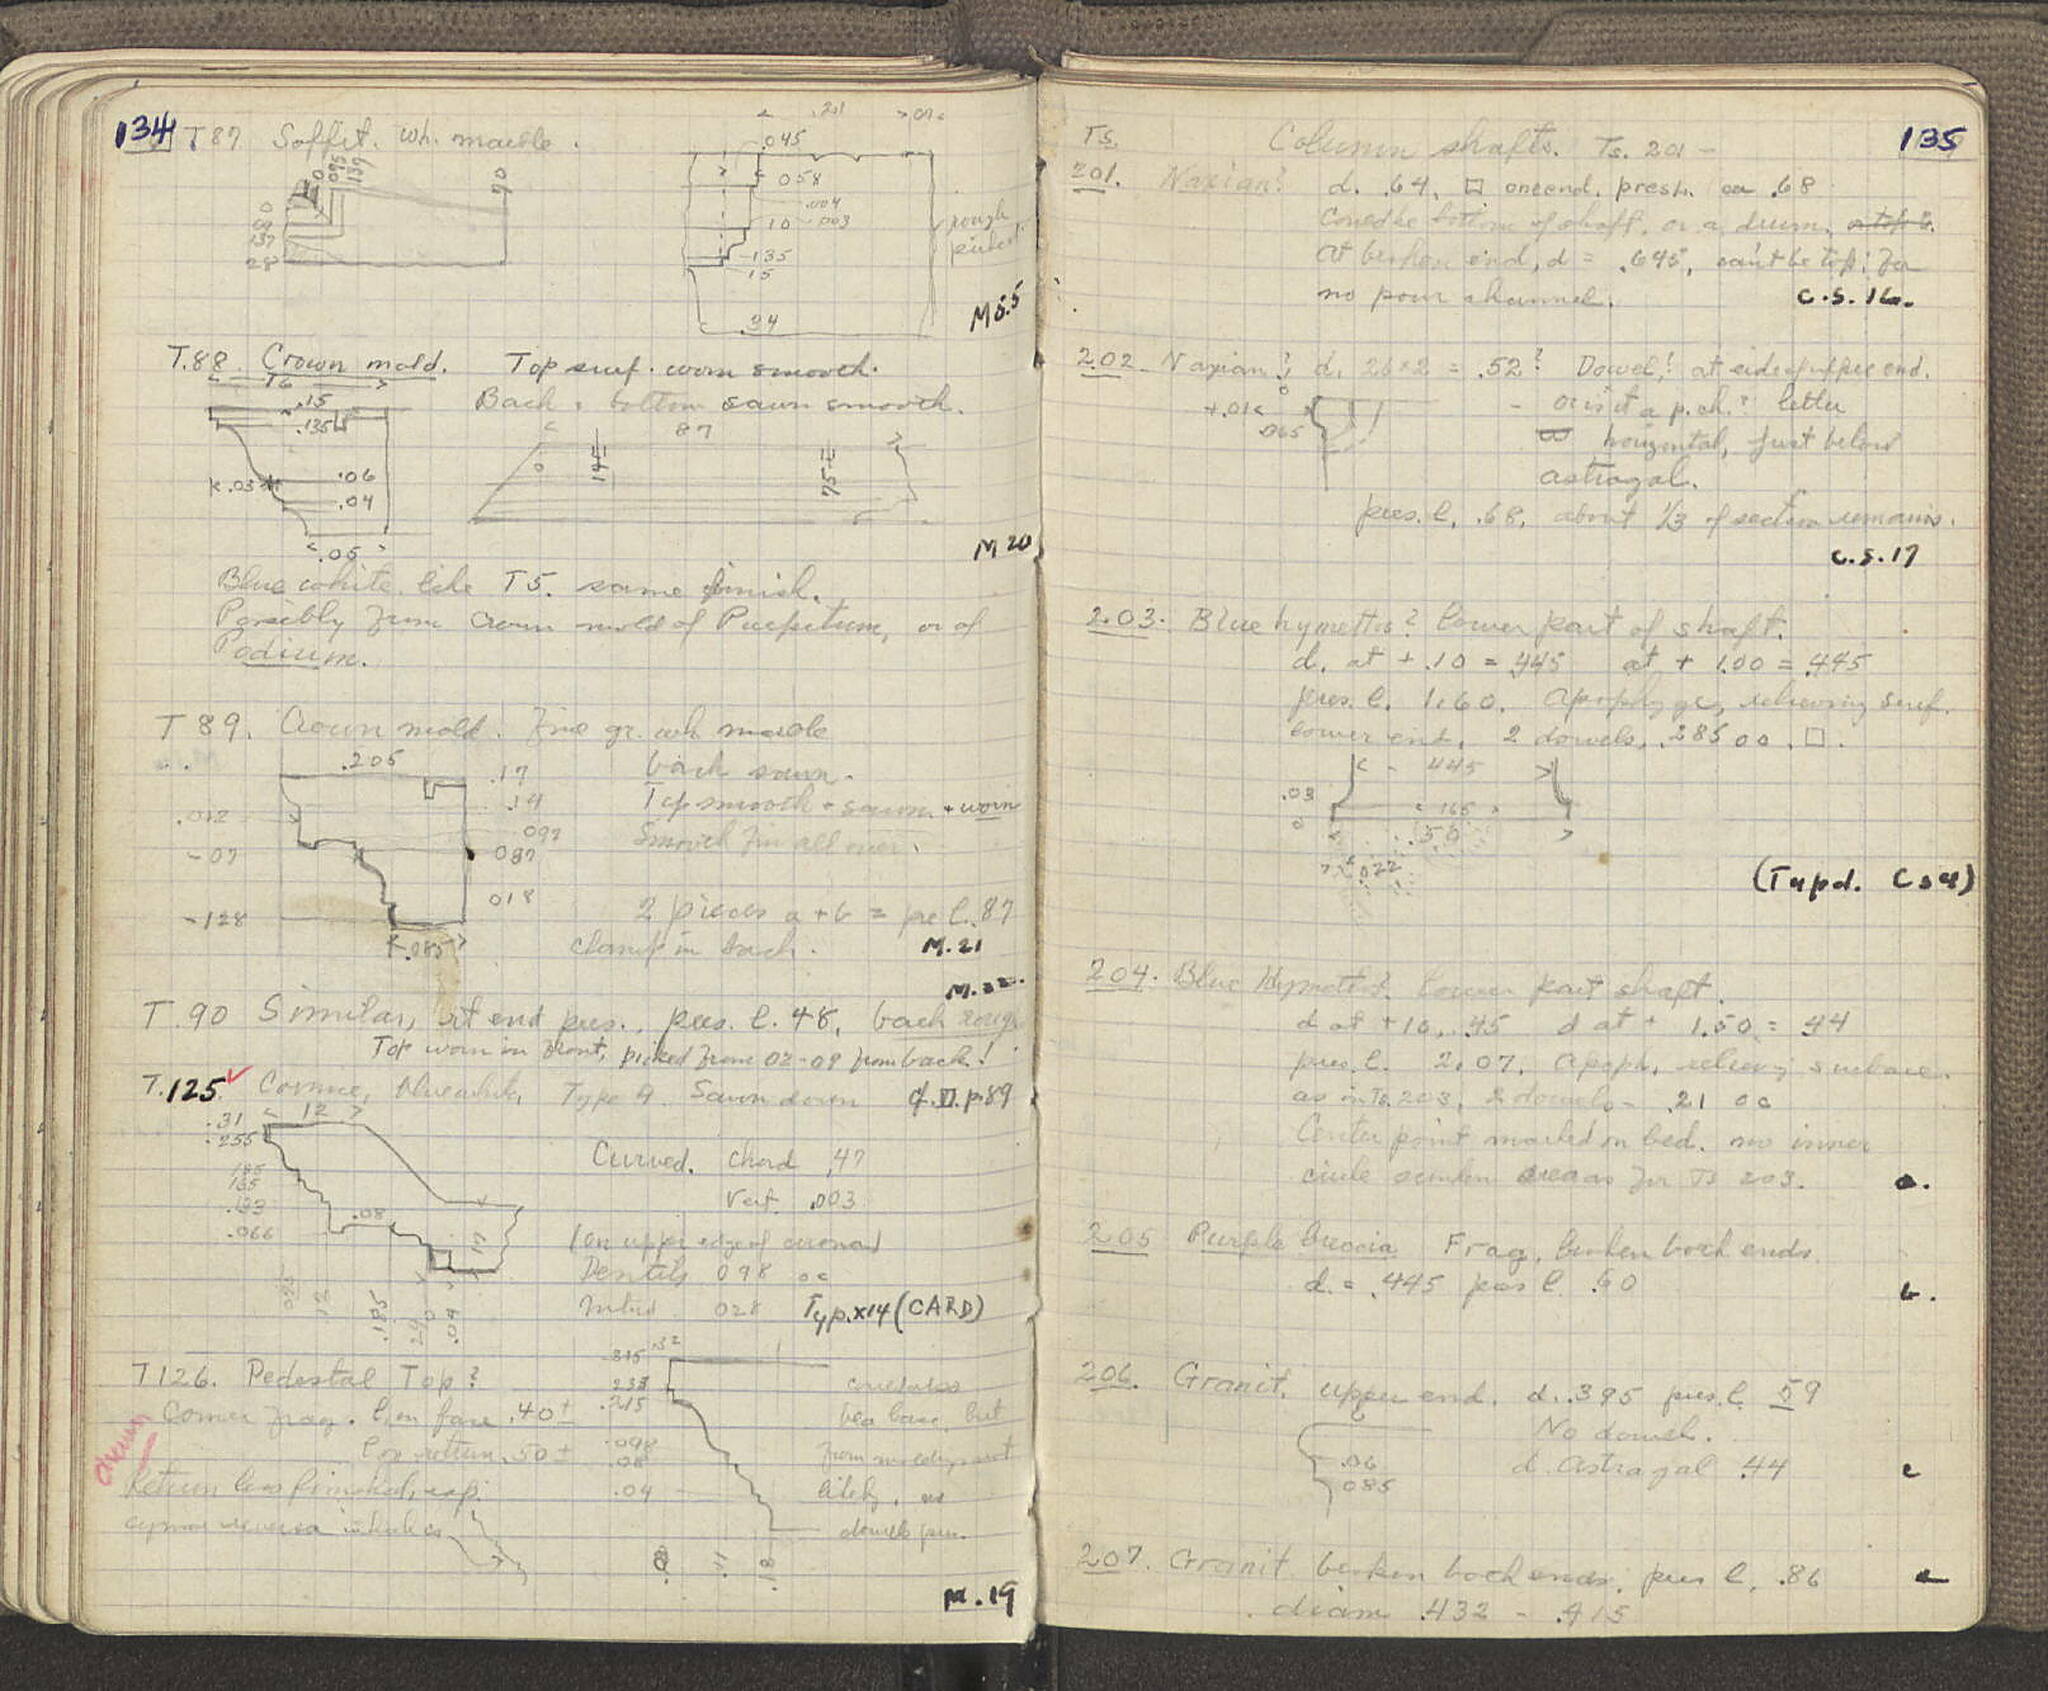 134
T87 Soffit. wh. marble.
0 095 139
.90
0
09
137
28
.21
.045
058
.004
10 .003
135
15
.34
rough
M 55
T.88 Crown mold. Top surf. worn smooth.
Back & bottom sawn smooth.
T6
.15
.135
.06
.03
.04
.05
87
M 20
Blue white like T5. same finish.
Possibly from Crown mold of Pulpitum, or of
Podium.
T 89. Crown mold. Fine gr. wh marble
.205
.17
.14
.012
092
-07
087
018
-128
.085
back sawn.
Top smooth & sawn & worn
Smooth fin all over.
2 pieces a + b = pre l. 87
clamp in back.
M. 21
M. 22.
T. 90 Similar, rt end pres., pres. l. 48, back rough
Top worn in front, picked from 02-09 from back!
T.125 Cornice, bluewhite, Type 9. Sawn down cf. VI. p.89
12
.31
.255
185
165
.133
.066
.08
17
12
.195
240
.04
Curved. Chord .47
Vert. .003
(on upper edge of corona)
Dentils 098 oc
028 Typ.x14 (CARD)
T126. Pedestal Top?
Corner frag. l. on face .40±
l. on return .50±
Return less finished, esp.
cyma reversa which is
drawn
.315 .32
.233
.215
.098
.08
.04
.11
.18
could also
be a base, but
from molding not
likely, as
dowels pres.
M. 19
135
Ts. Column shafts. Ts. 201 -
201. Naxian? d. .64. □ one end. presh. ca .68
Could be bottom of shaft, or a drum, or top is.
At broken end, d = .645, can't be top: for
no pour channel.
C.S. 16.
202. Naxian?; d. 26x2 = .52? Dowel? at side of upper end.
- or is it a p.ch.? latter
horizontal, just below
astragal.
0
+.01
.065
pres. l. .68, about 1/3 of section remains.
C.S. 17
203. Blue hymettos? lower part of shaft.
d. at +.10 = .445 at + 1.00 = .445
pres. l. 1.60. Apophyge, relieving surf.
lower end. 2 dowels, .285 oc. □.
445
.03
165
0
.50
.022
(Typd. CS4)
204. Blue Hymettos? Lower part shaft.
d at +10, .45 d at + 1.50 = .44
pres. l. 2.07. Apoph. relieving surface.
as in Ts. 203, 2 dowels - .21 oc
Center point marked on bed. no inner
circle sunken area as for Ts 203. a.
205 Purple breccia Frag. broken both ends.
d. = .445 pres l. .50 b.
206. Granit. upper end. d. .395 pres. l. 59
No dowel.
.06
085
d. astragal .44
c
207. Granit broken both ends. pres l. .86
diam .432 - .415